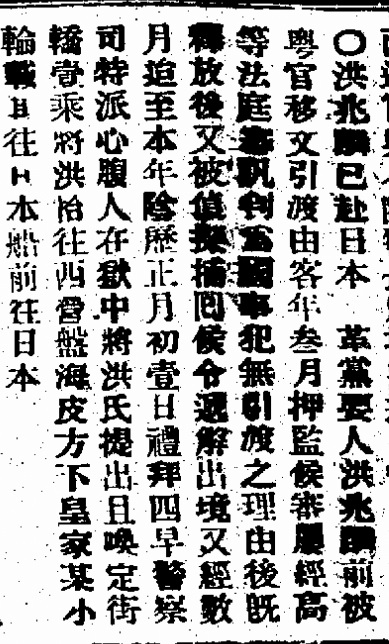 〇洪兆麟已赴日本　革黨要人洪兆麟前被
粵官移文引渡由客年叁月押監候審屢經高
等法庭審訊判為國事犯無引渡之理由後既
釋放後又被偵探捕囘候令遞解出境又經數
月迨至本年陰歷正月初壹日禮拜四早警察
司特派心腹人在獄中將洪氏提出且喚定街
轎壹乘將洪怡往四營盤海皮方下皇家某小
輪載且往日本船前往日本